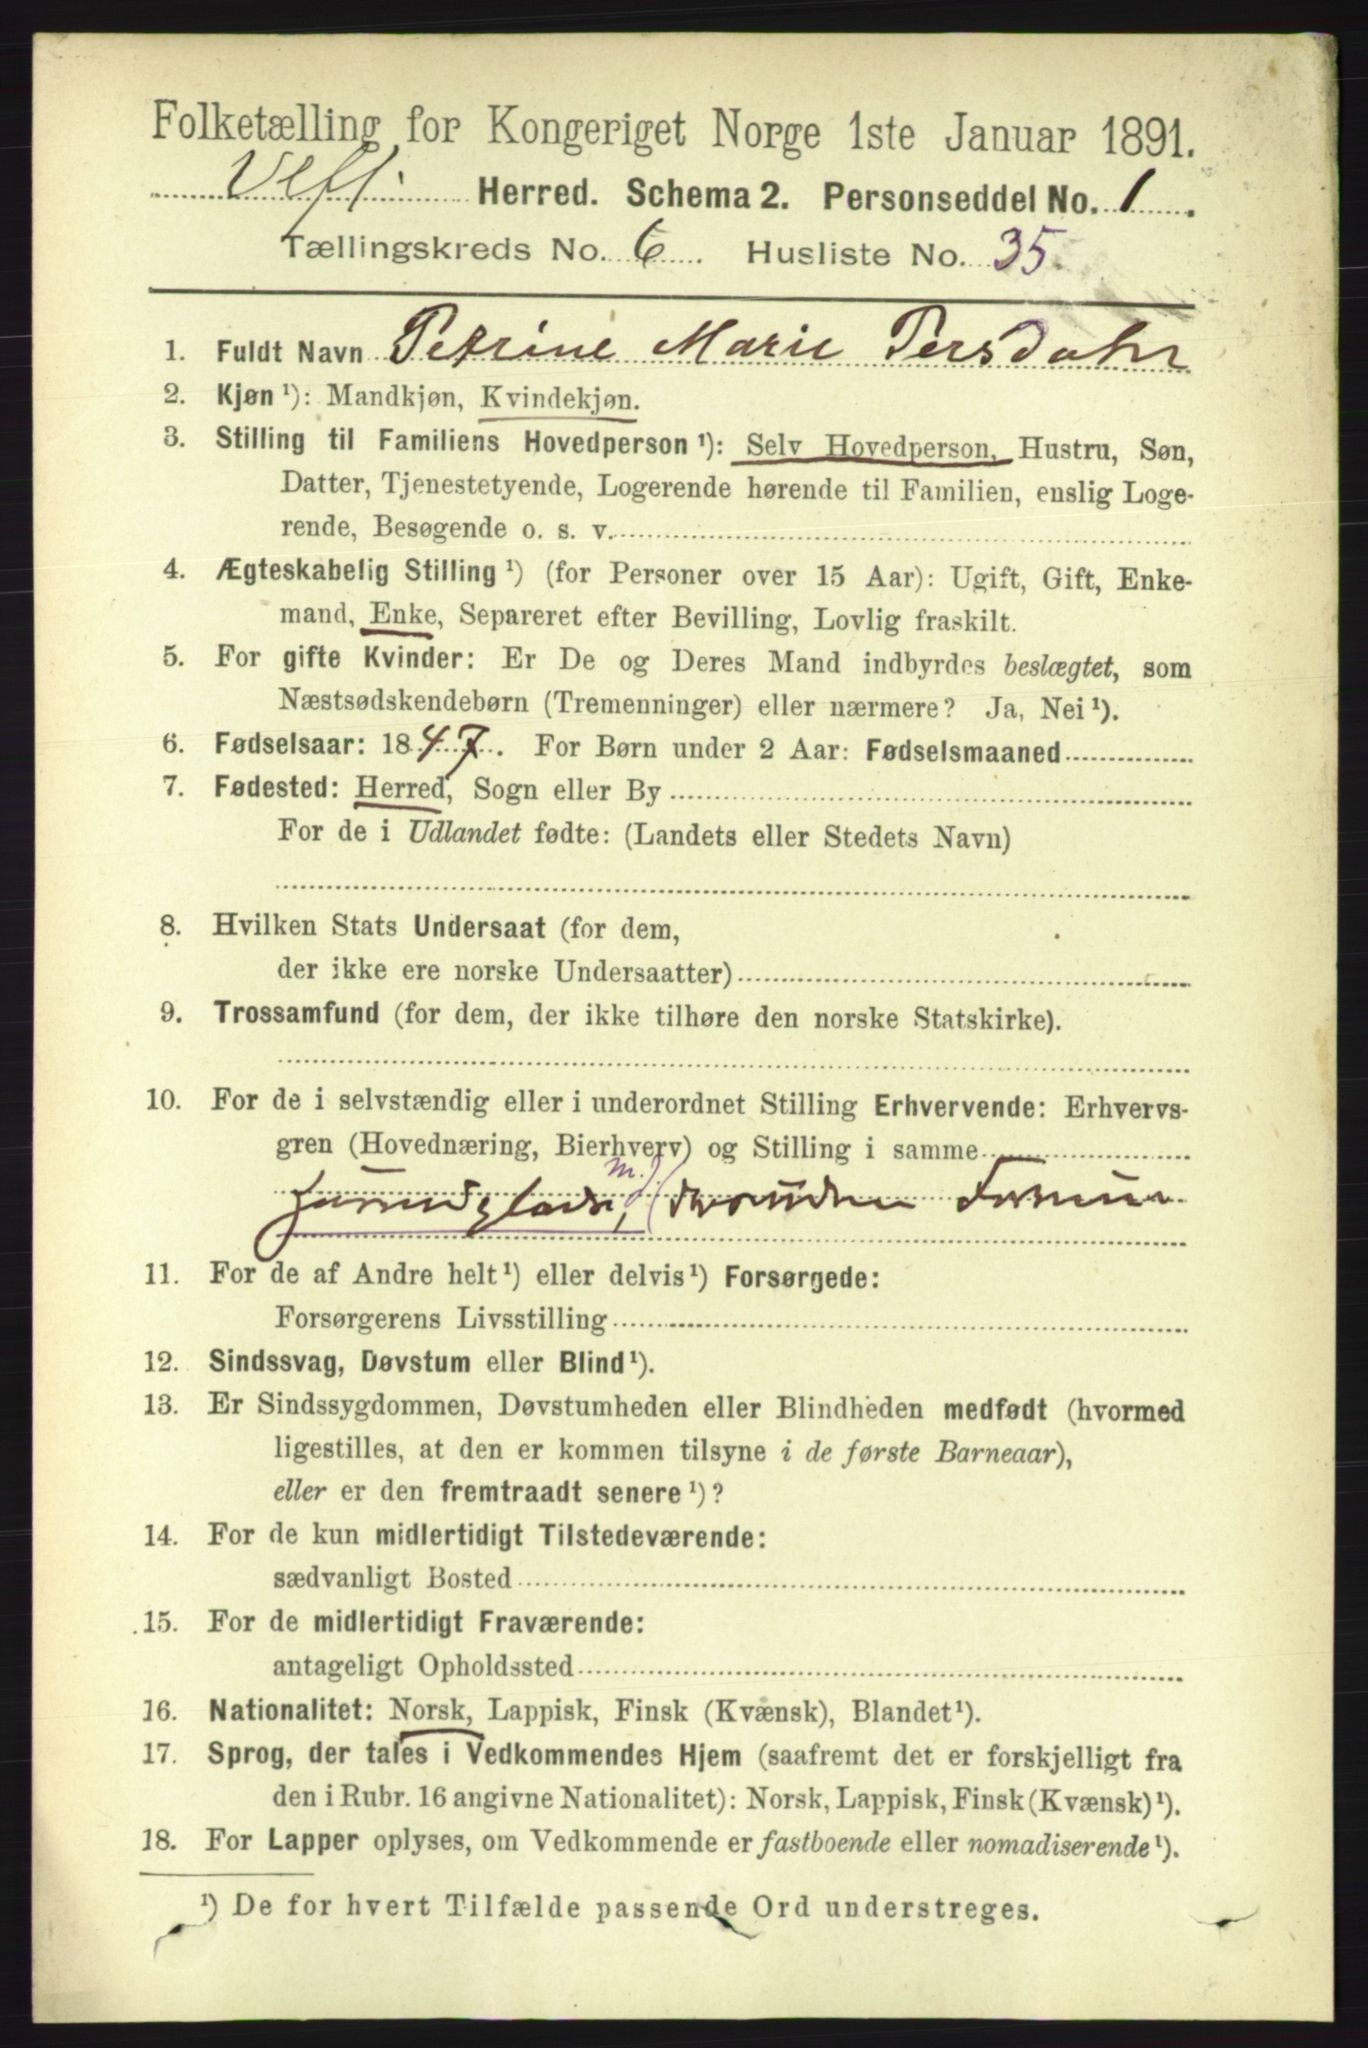 Folketælling for Kongeriget Norge 1ste Januar 1891.
Herred. Schema 2. Personseddel No. 1.
Tællingskreds No. 6. Husliste No. 35.
1. Fuldt Navn Petrine Marie Persdatr
2. Kjøn ¹): Mandkjøn, Kvindekjøn.
3. Stilling til Familiens Hovedperson ¹): Selv Hovedperson, Hustru, Søn,
Datter, Tjenestetyende, Logerende hørende til Familien, enslig Loge-
rende, Besøgende o. s. v.
4. Ægteskabelig Stilling ¹) (for Personer over 15 Aar): Ugift, Gift, Enke-
mand, Enke, Separeret efter Bevilling, Lovlig fraskilt.
5. For gifte Kvinder: Er De og Deres Mand indbyrdes beslægtet, som
Næstsødskendebørn (Tremenninger) eller nærmere? Ja, Nei ¹).
6. Fødselsaar: 1847. For Børn under 2 Aar: Fødselsmaaned
7. Fødested: Herred, Sogn eller By
For de i Udlandet fødte: (Landets eller Stedets Navn)
8. Hvilken Stats Undersaat (for dem,
der ikke ere norske Undersaatter)
9. Trossamfund (for dem, der ikke tilhøre den norske Statskirke).
10. For de i selvstændig eller i underordnet Stilling Erhvervende: Erhvervs-
gren (Hovednæring, Bierhverv) og Stilling i samme
11. For de af Andre helt ¹) eller delvis ¹) Forsørgede:
Forsørgerens Livsstilling
12. Sindssvag, Døvstum eller Blind ¹).
13. Er Sindssygdommen, Døvstumheden eller Blindheden medfødt (hvormed
ligestilles, at den er kommen tilsyne i de første Barneaar),
eller er den fremtraadt senere ¹)?
14. For de kun midlertidigt Tilstedeværende:
sædvanligt Bosted
15. For de midlertidigt Fraværende:
antageligt Opholdssted
16. Nationalitet: Norsk, Lappisk, Finsk (Kvænsk), Blandet ¹).
17. Sprog, der tales i Vedkommendes Hjem (saafremt det er forskjelligt fra
den i Rubr. 16 angivne Nationalitet): Norsk, Lappisk, Finsk (Kvænsk) ¹).
18. For Lapper oplyses, om Vedkommende er fastboende eller nomadiserende ¹).
¹) De for hvert Tilfælde passende Ord understreges.